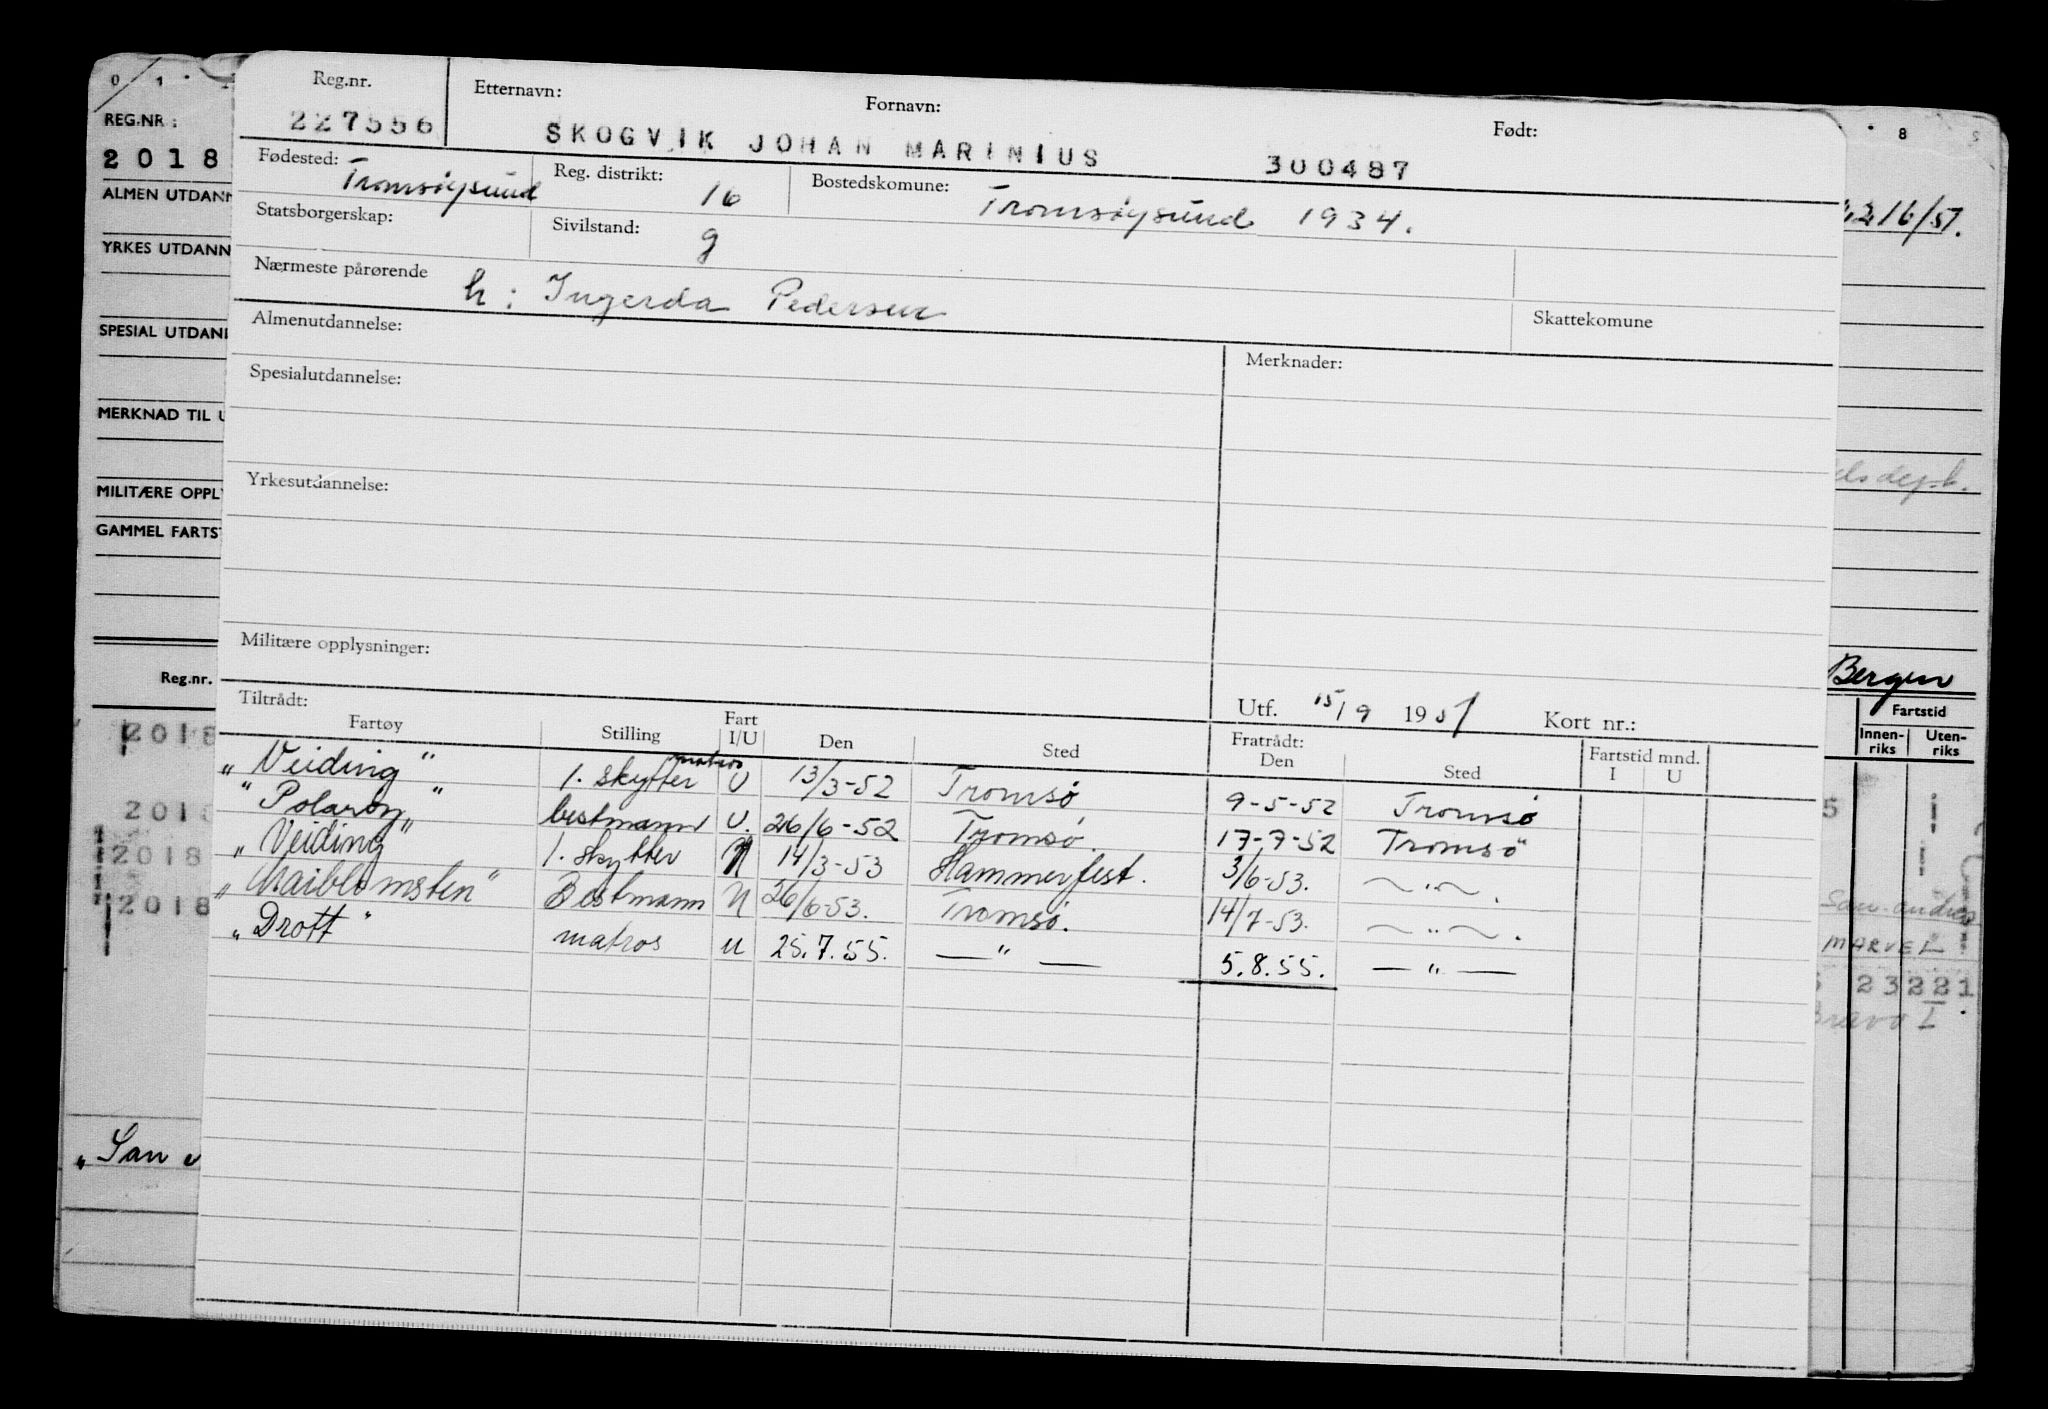 Reg.nr. Etternavn: Fornavn: Født:
227556 SKOGVIK JOHAN MARINIUS 300487
Fødested: Tromsøysund Reg. distrikt: 16 Bostedskomune: Tromsøysund 1934.
Statsborgerskap: Sivilstand: g
Nærmeste pårørende h: Ingerda Pedersen
Almenutdannelse: Skattekomune
Spesialutdannelse: Merknader:
Yrkesutdannelse:
Militære opplysninger:
Tiltrådt: Utf. 15/9 1951 Kort nr.:
Fartøy Stilling Fart I/U Den Sted Fratrådt: Den Sted Fartstid mnd. I U
matros
„Veiding" 1. skytter U 13/3-52 Tromsø 9-5-52 Tromsø
"Polarøy" bestmann U. 26/6-52 Tromsø. 17-7-52 Tromsø
„Veiding" 1. skytter U 14/3-53 Hammerfest. 3/6-53. ~"~.
„Maiblomsten" Bestmann U 26/6-53. Tromsø. 14/7-53. ~"~.
„Drott" matros U 25.7.55. —"— 5.8.55. —"—
REG.NR:
2018
ALMEN UTDANN
YRKES UTDANN
SPESIAL UTDAN
MERKNAD TIL U
MILITÆRE OPPLY
GAMMEL FARTST
Reg.nr.
2018
2018
2018
2018
„San
216/51.
Bergen
Fartstid
Innen-riks Uten-riks
5
San Andres
MARVEL
23221
Bravo I